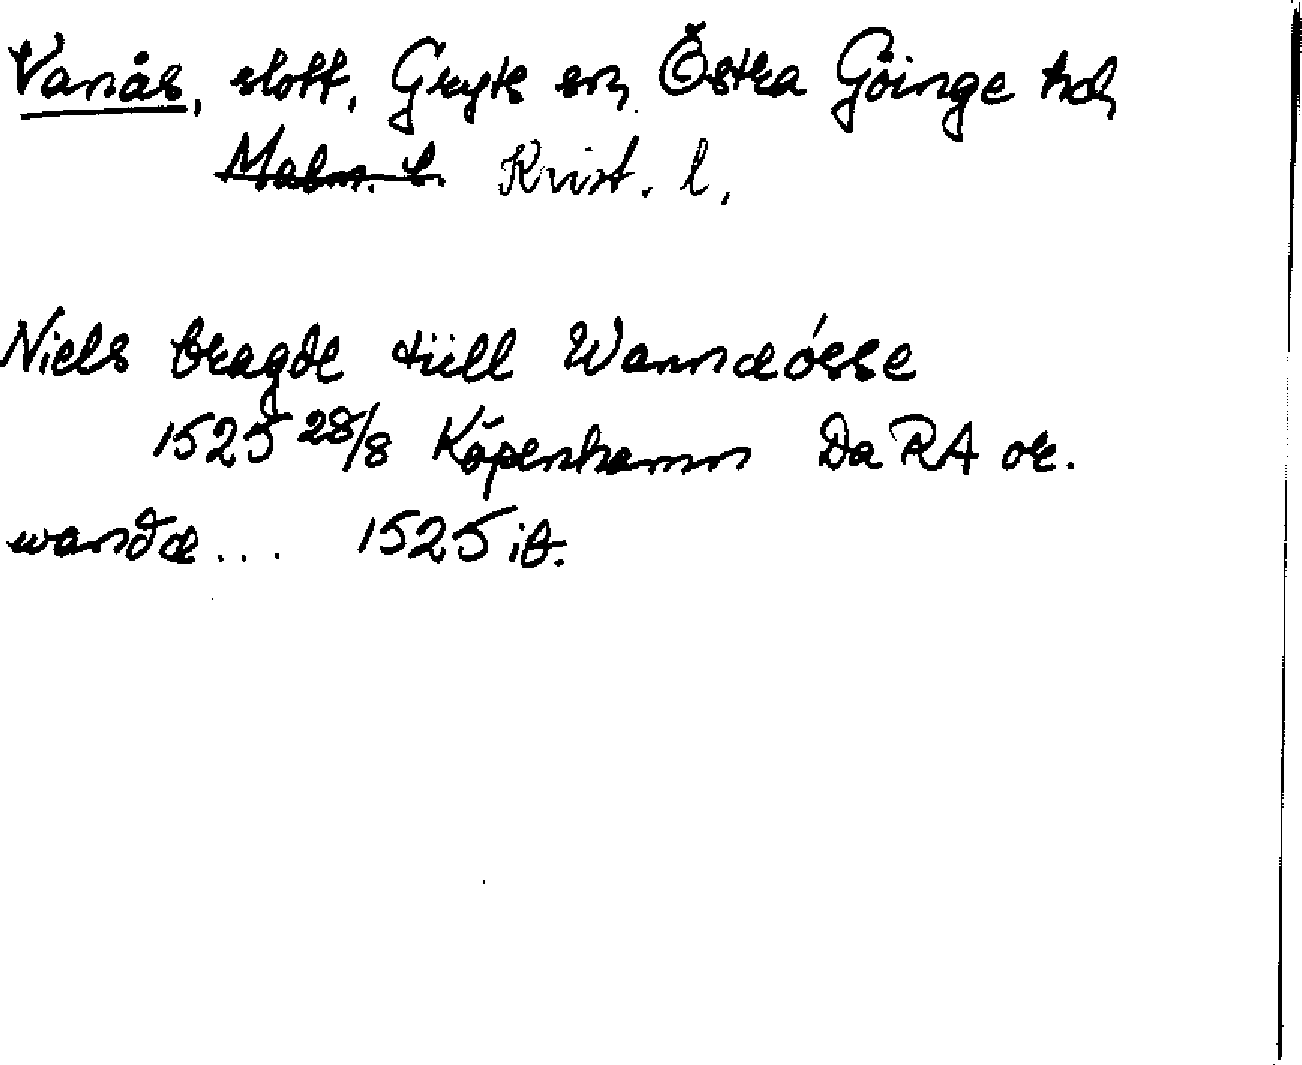 Vanås, slott, Gryts sn, Östra Göinge hd,
~~Malm. l.~~ Krist. l.
Niels bragde tüll Wanndósse
1525 28/8 Köpenhamn DaRA or.
wandæ... 1525 ib.